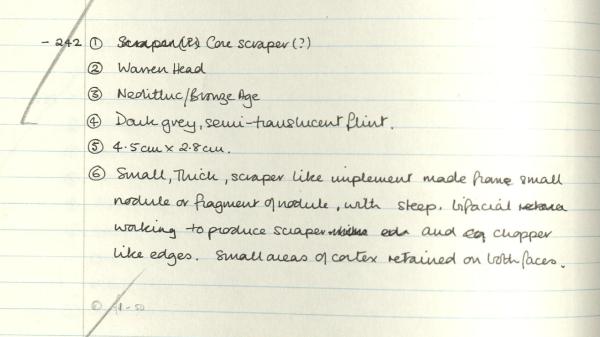 - 242 ① Scraper(?) Core scraper (?)
② Warren Head
③ Neolithic/Bronze Age
④ Dark grey, semi-translucent flint.
⑤ 4.5cm x 2.8cm.
⑥ Small, Thick, scraper like implement made from small
nodule or fragment of nodule, with steep. bifacial
working to produce scraper and chopper
like edges. Small areas of cortex retained on both faces.